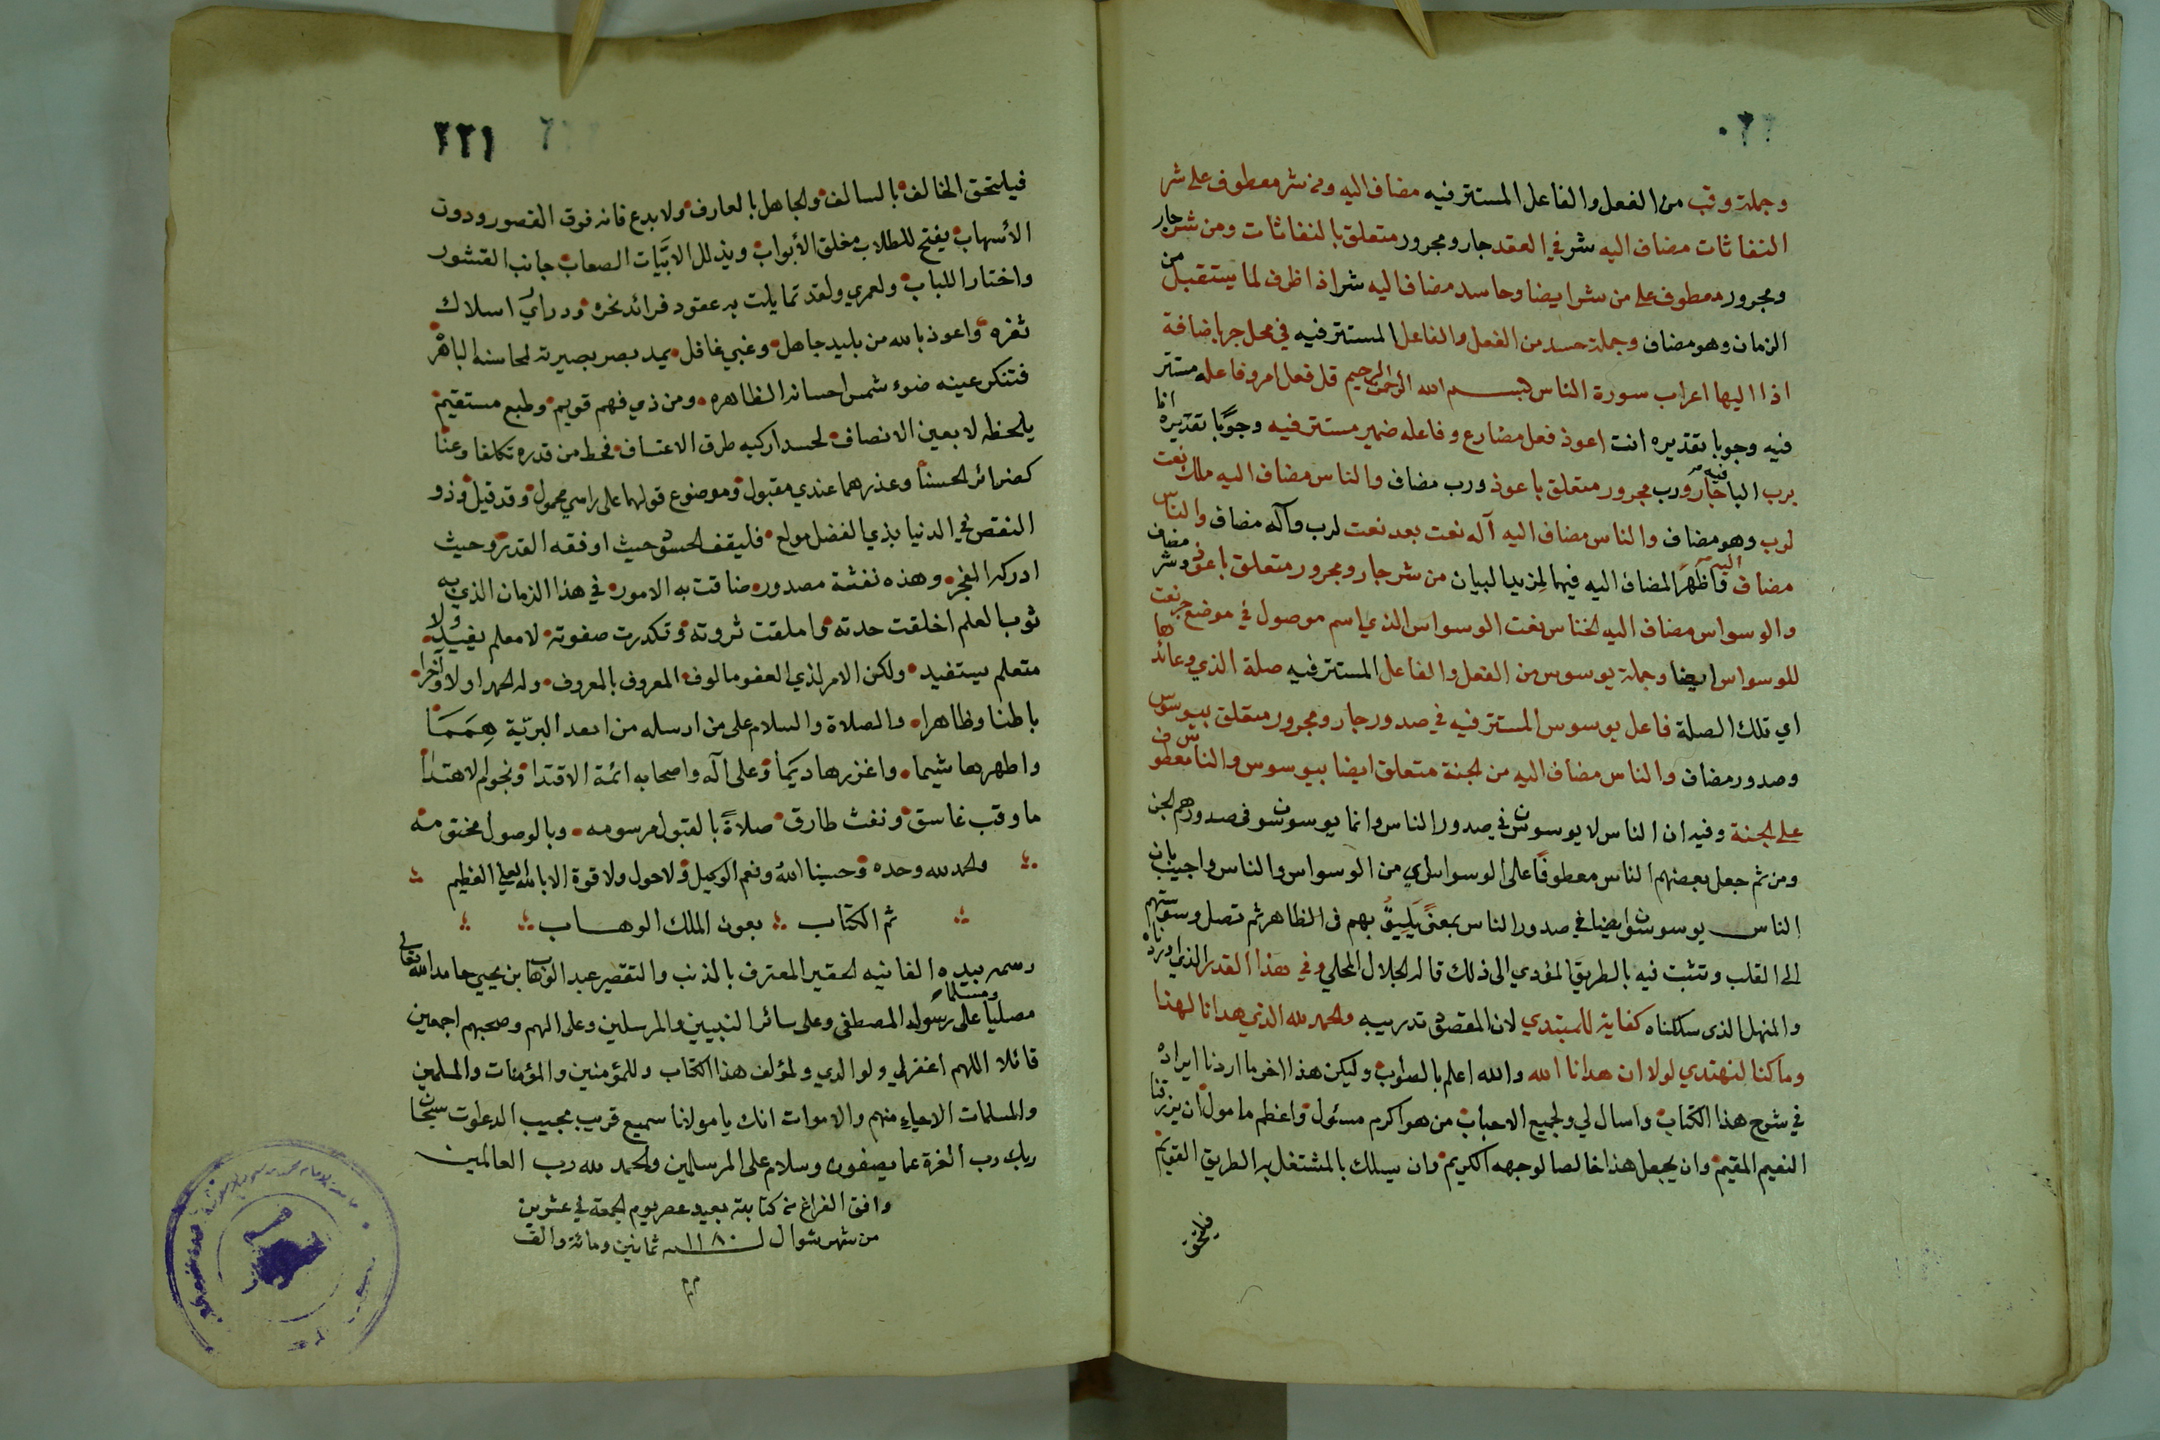 ٢٢٠
وجملة وقب من الفعل والفاعل المستتر فيه مضاف اليه ومن شر معطوف على شر
النفاثات مضاف اليه شر في العقد جار ومجرور متعلق بالنفاثات ومن شر جار
ومجرور معطوف على من شر ايضا وحاسد مضاف اليه شر اذا ظرف لما يستقبل من
الزمان وهو مضاف وجملة حسد من الفعل والفاعل المستتر فيه في محل جر باضافة
اذا اليها اعراب سورة الناس بسم الله الرحمن الرحيم قل فعل امر وفاعله مستتر
فيه وجوبا تقديره انت اعوذ فعل مضارع وفاعله ضمير مستتر فيه وجوبا تقديره انا
برب البا فيه جار ورب مجرور متعلق باعوذ ورب مضاف والناس مضاف اليه ملك نعت
لرب وهو مضاف والناس مضاف اليه آله نعت بعد نعت لرب وآله مضاف والناس
مضاف اليه واظهر المضاف اليه فيهما لمزيد البيان من شر جار ومجرور متعلق باعوذ وشر مضاف
والوسواس مضاف اليه الخناس نعت الوسواس الذي اسم موصول في موضع جر نعت
للوسواس ايضا وجملة يوسوس من الفعل والفاعل المستتر فيه صلة الذي وعائدها
اي تلك الصلة فاعل يوسوس المستتر فيه في صدور جار ومجرور متعلق بيوسوس
وصدور مضاف والناس مضاف اليه من الجنة متعلق ايضا بيوسوس والناس معطوف
على الجنة وفيه ان الناس لا يوسوسون في صدور الناس وانما يوسوسون في صدورهم الجن
ومن ثم جعل بعضهم الناس معطوفا على الوسواس اي من الوسواس والناس واجيب بان
الناس يوسوسون ايضا في صدور الناس بمعنى يليق بهم في الظاهر ثم تصل وسوستهم
الى القلب وتثبت فيه بالطريق المؤدي الى ذلك قاله الجلال المحلي وفي هذا القدر الذي اوردناه
والمنهل الذي سلكناه كفاية للمبتدي لان المقصود تدريبه والحمد لله الذي هدانا لهذا
وما كنا لنهتدي لولا ان هدانا الله والله اعلم بالصواب وليكن هذا اخر ما اردنا ايراده
في شرح هذا الكتاب واسال لي ولجميع الاحباب من هو اكرم مسئول واعظم مامول ان يرزقنا
النعيم المقيم وان يجعل هذا خالصا لوجهه الكريم وان يسلك بالمشتغل به الطريق القويم
فيلتحق
٢٢١
فيلتحق الخالف بالسالف والجاهل بالعارف ولا بدع فانه فوق القصور ودون
الأسهاب يفتح للطلاب مغلق الأبواب ويذلل الابيات الصعاب جانب القشور
واختار اللباب ولعمري ولقد تمايلت به عقود فرائد نحره ودراري اسلاك
ثغره واعوذ بالله من بليد جاهل وغبي غافل يمد بصر بصيرته لمحاسنه الباهره
فتنكر عينه ضوء شمس احسانه الظاهره ومن ذي فهم قويم وطبع مستقيم
يلحظه لا بعين الانصاف لحسد اركبه طرق الاعتساف فحط من قدره تكلفا وعنا
كضرائر الحسنا وعذرهما عندي مقبول وموضوع قولهما على راسي محمول وقد قيل وذو
النقص في الدنيا بذي الفضل مولع فليقف الحسود حيث اوقفه القدر وحيث
ادركه العجز وهذه نفثة مصدور ضاقت به الامور في هذا الزمان الذي به
ثوب العلم اخلقت جدته واملقت ثروته وتكدرت صفوته لا معلم يفيد ولا
متعلم يستفيد ولكن الامر لذي العفو مالوف المعروف بالمعروف وله الحمد اولا وآخرا
باطنا وظاهرا والصلاة والسلام على من ارسله من اسعد البرية همما
واطهرها شيما واغزرها ديما وعلى آله واصحابه ائمة الاقتدا ونجوم الاهتدا
ما وقب غاسق ونفث طارق صلاة بالقبول مرسومه وبالوصول مختومه
والحمد لله وحده وحسبنا الله ونعم الوكيل ولا حول ولا قوة الا بالله العلي العظيم
تم الكتاب بعون الملك الوهاب
رسمه بيده الفانيه الحقير المعترف بالذنب والتقصير عبد الوهاب بن يحيى حامدا لله تعالى
مصليا ومسلما على رسوله المصطفى وعلى سائر النبيين والمرسلين وعلى الهم وصحبهم اجمعين
قائلا اللهم اغفر لي ولوالدي ولمؤلف هذا الكتاب وللمؤمنين والمؤمنات والمسلمين
والمسلمات الاحياء منهم والاموات انك يا مولانا سميع قريب مجيب الدعوات سبحان
ربك رب العزة عما يصفون وسلام على المرسلين والحمد لله رب العالمين
وافق الفراغ من كتابته بعيد عصر يوم الجمعة في عشرين
من شهر شوال سنة ١١٨٠ ثمانين ومائة والف